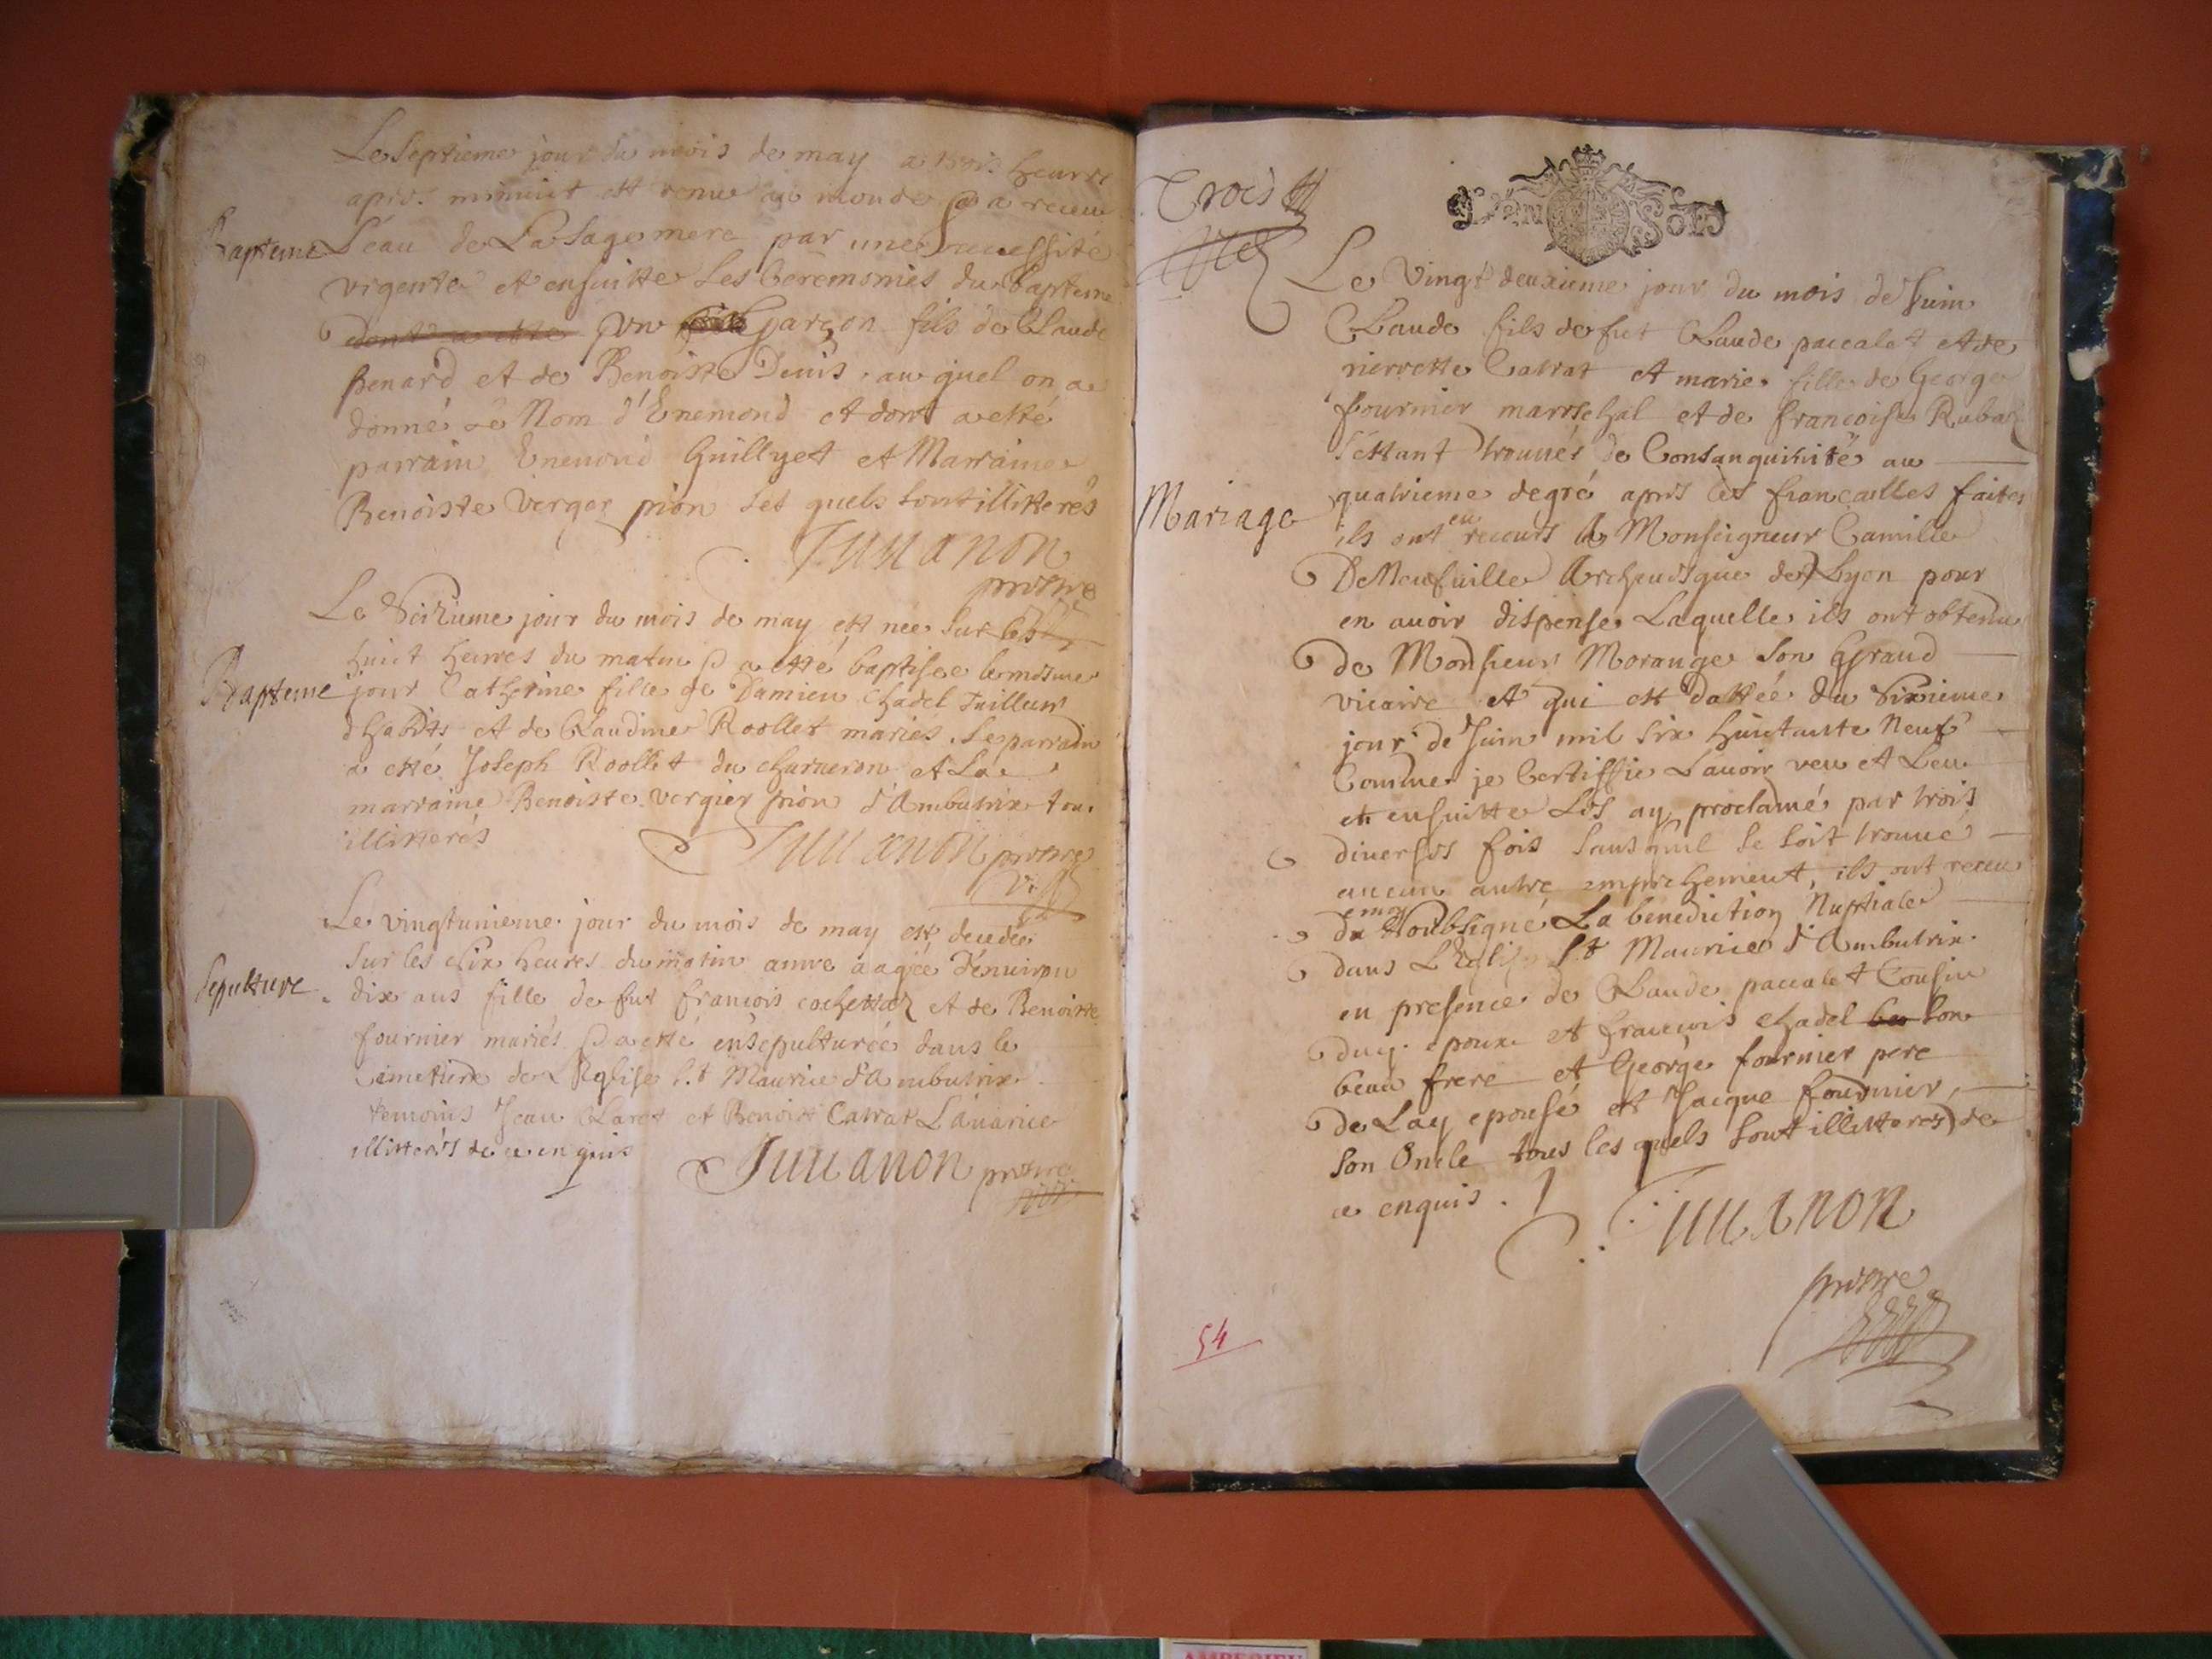 Le Septieme jour du mois de may a trois heures
apres minuit est venu au monde & a receu
Bapteme
L'eau de La Sage mere par une necessité
vrgente et ensuitte Les Ceremonies du Bapteme
dont a etté Vn Garçon fils de Claude
Benard et de Benoiste Denis, auquel on a
donné Le Nom d'Enemond et dont a etté
parrain Enemond Guillyet et Marraine
Benoiste Verger pion les quels sont illitterés
Juuanon
prestre
Le Seizieme jour du mois de may est née Sur les
huict heures du matin & a etté baptisée le mesme
Bapteme
jour Catherine fille de Damien Chadel tailleur
d'habits et de Claudine Roollet mariés. Le parrain
a etté Joseph Roollet du charneron et La
marraine Benoiste vergier pion d'Ambutrix tous
illitterés
Juuanon prestre
Le vingtunieme jour du mois de may est decedée
Sur les dix heures du matin anne aagée d'enuiron
Sepulture
dix ans fille de fut francois cochet et de Benoiste
fournier mariés & a etté ensepulturée dans le
Cimetiere de L'Eglise S.t Maurice d'Ambutrix
temoins Jean Claret et Benoist Catrat Lauarice
illitterés de ce enquis
Juuanon prestre
Trois
GEN SOLS
Le Vingt deuxieme jour du mois de Juin
Claude fils de fut Claude paccalet et de
pierrette Catrat et marie fille de George
fournier marrechal et de francoise Rubat
S'ettant trouués de Consanguinité au
quatrieme degré apres les fiancailles faites
Mariage
ils ont eu recours A Monseigneur Camille
De Neufuille Archeuesque de Lyon pour
en auoir dispense Laquelle ils ont obtenu
de Monsieur Morange Son Grand
vicaire et qui est dattée du Sixieme
jour de Juin mil six huictante Neuf
Comme je Certiffie L'auoir veu et Leu
et ensuitte Les ay proclamé par trois
diuerses fois Sans quil se soit trouué
aucun autre empechement, ils ont receu
de moy Soubsigné La benediction Nuptiale
dans L'Eglise S.t Maurice d'Ambutrix
en presence de Claude paccalet Cousin
du epoux et francois chadel son
beau frere et George fournier pere
de Lay epouse et Jacque fournier,
Son Oncle tous les quels sont illitteres de
ce enquis.
Juuanon
prestre
54